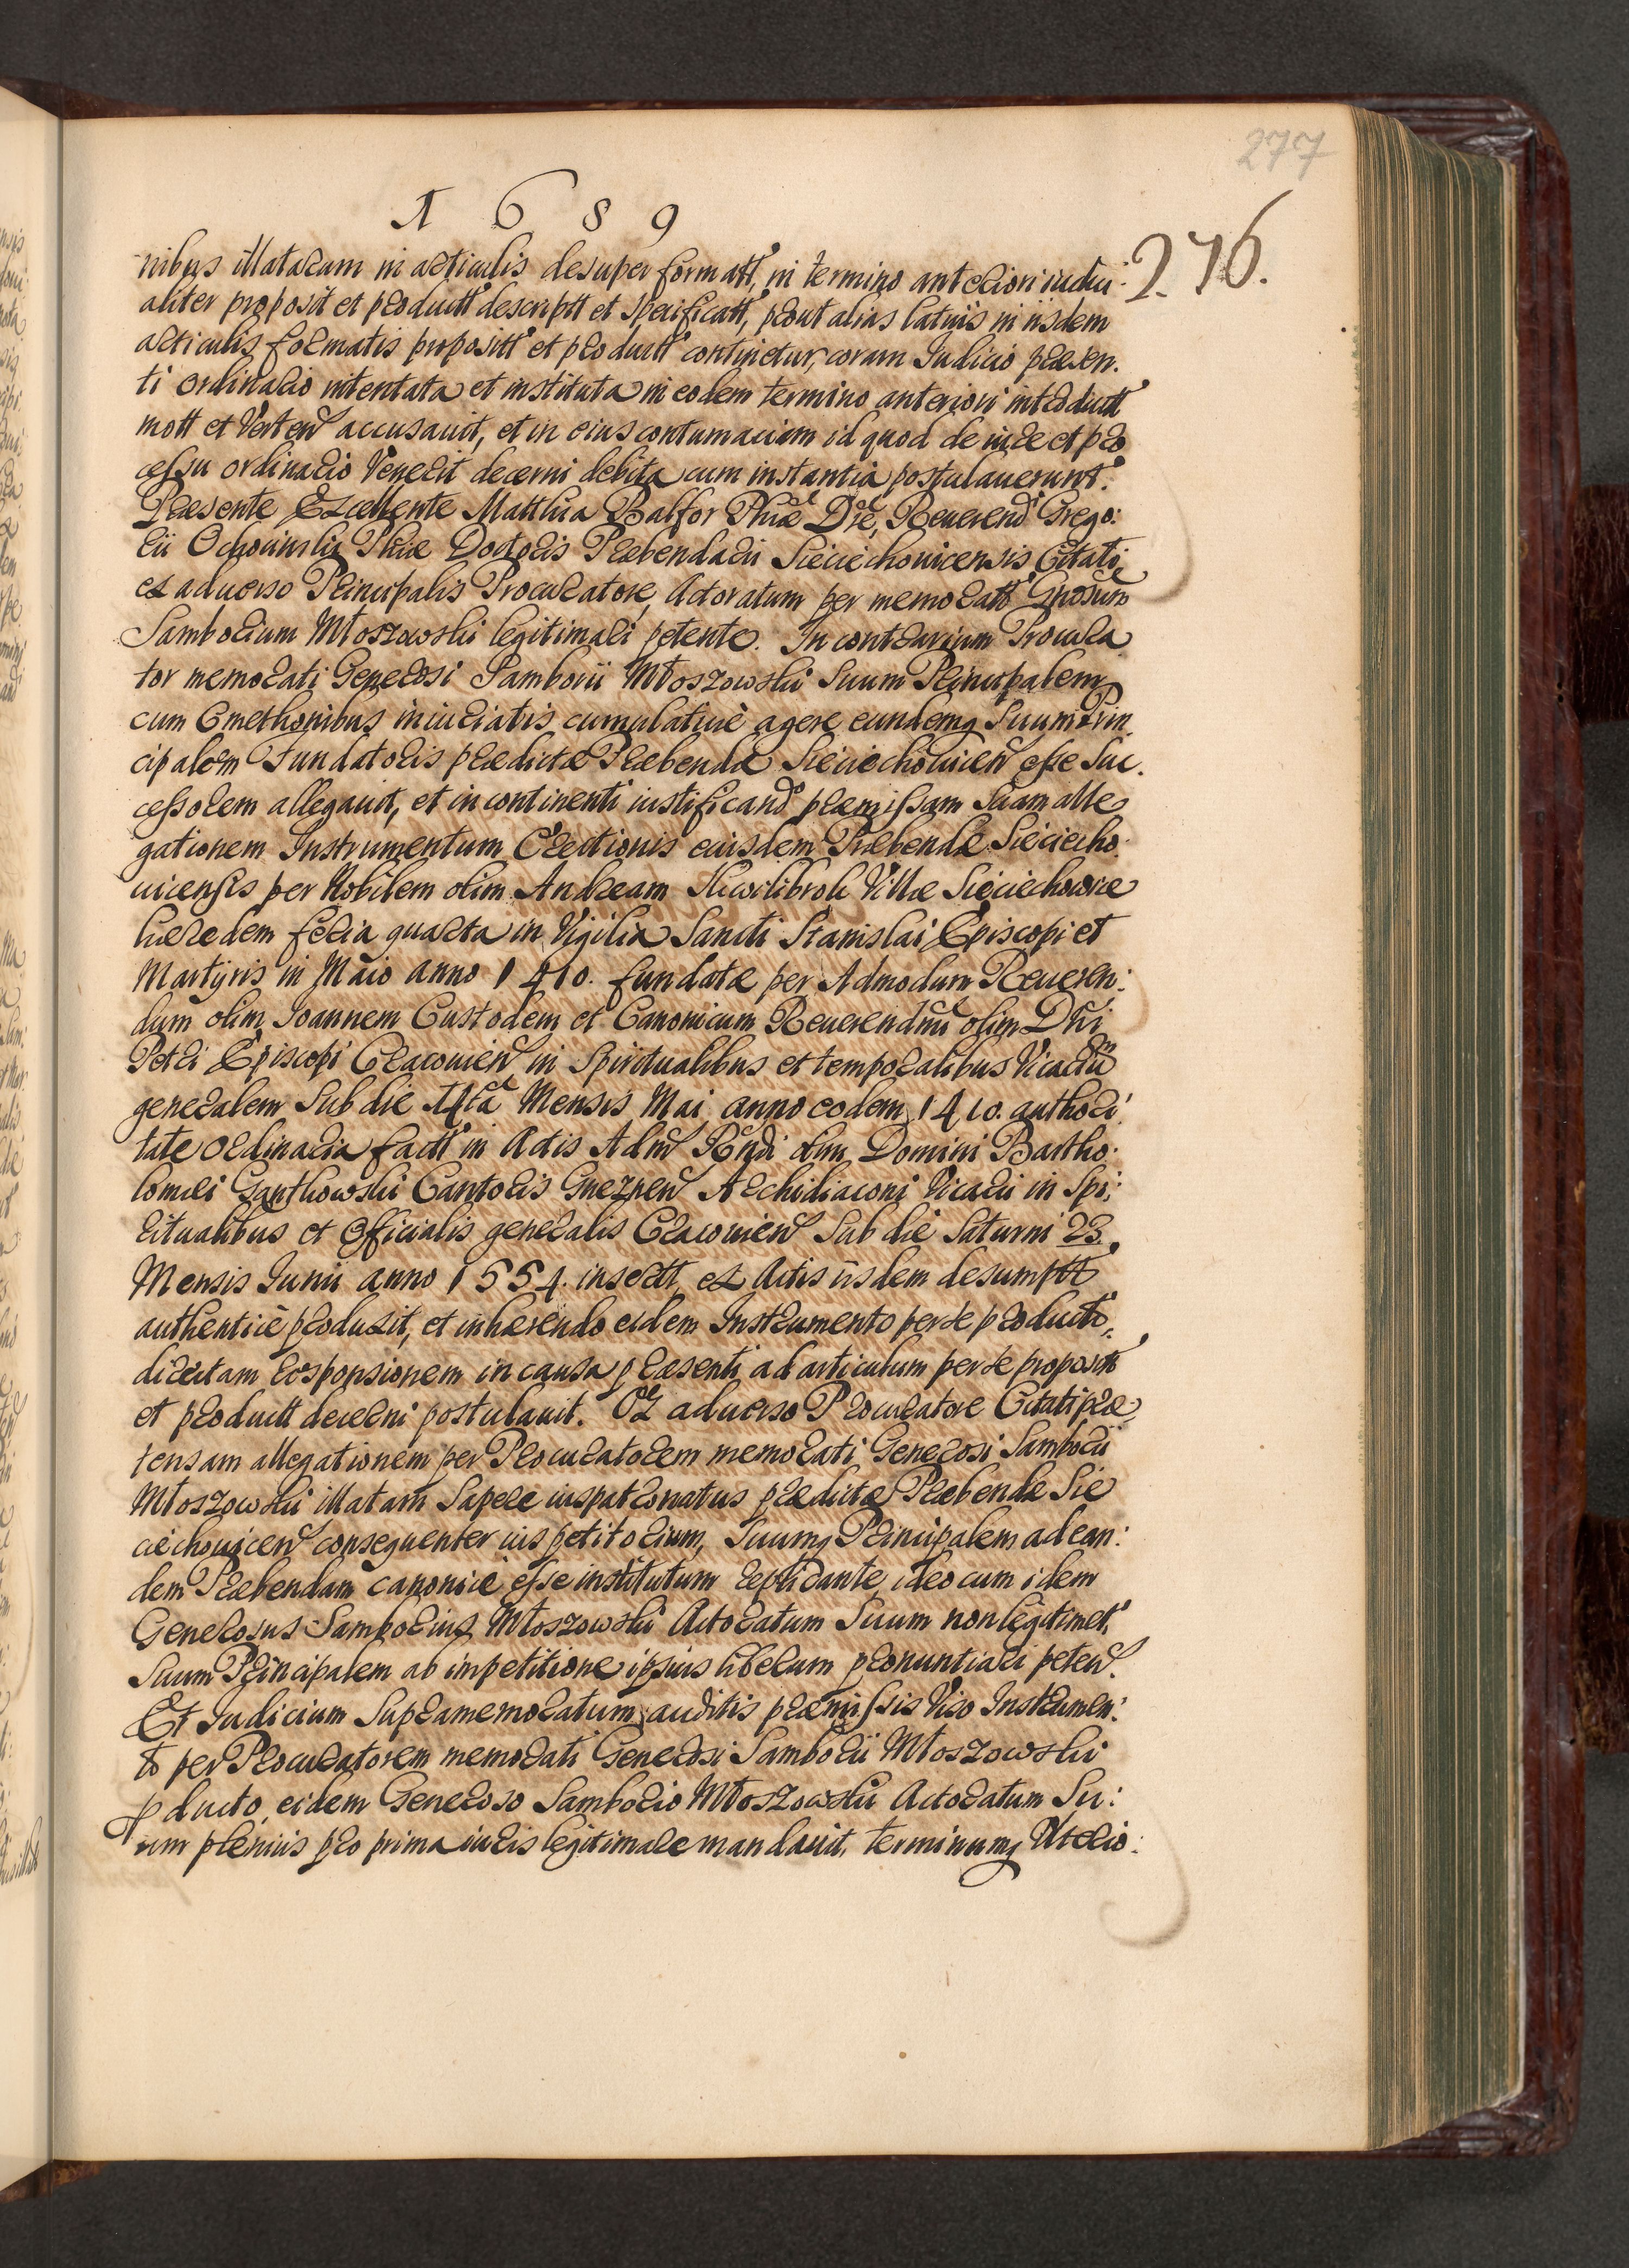 277
1 6 8 9
276.
nibus illatarum in articulis desuper formatt, in termino anteriori iudici:
aliter proposit et productt descriptt et specificatt, prout alias latius in iisdem
articulis formatis propositt et productt continetur, coram Iudicio praesen.
ti ordinario intentata et instituta in eodem termino anteriori introductt
mott et Verten accusauit, et in eius contumaciam id quod de iure et pro
cessu ordinario Venerit decerni debita cum instantia postulauerunt.
Praesente Excellente Matthia Balfor Phiae Dre, Reuerend Grego:
rii Ochocinski Phiae Doctoris Praebendarii Sieciechouicensis Citati,
ex aduerso Principalis Procuratore, Actoratum per memoratt Gnosum
Samborium Młoszowski legitimari petente. In contrarium Procura
tor memorati Generosi Samborii Młoszowski Suum Principalem
cum Cmethonibus iniuriatis cumulatiuè agere eundemq Suum Prin
cipalem Fundatoris praedictae Praebendae Sieciechouicen esse Suc.
cessorem allegauit, et in continenti iustificand praemissam Suam alle
gationem Instrumentum Erectionis eiusdem Praebendae Sieciecho
uicensis per Nobilem olim Andream Villae Sieciechowice
haeredem feria quarta in Vigilia Sancti Stanislai Episcopi et
Martyris in Maio anno 1410. fundatae per Admodum Reueren:
dum olim Ioannem Custodem et Canonicum Reuerendmi olim Dni
Petri Episcopi Cracouien in Spiritualibus et temporalibus Vicariu
generalem Sub die 14ta Mensis Mai anno eodem 1410. authori:
tate Ordinaria factt in Actis Adm Rndi olim Domini Bartho:
lomei Ganthowski Cantoris Gneznen Archidiaconi Vicarii in Spi:
ritualibus et Officialis generalis Cracouien Sub die Saturni 23.
Mensis Iunii anno 1554. insertt, ex Actis iisdem desumptt
authenticè produxit, et inhaerendo eidem Instrumento per se producto,
directam responsionem in causa praesenti ad articulum per se propositt
et productt decerni postulauit. Ex aduerso Procuratore Citati prae
tensam allegationem per Procuratorem memorati Generosi Samborii
Młoszowski illatam Sapere iuspatronatus praedictae Praebendae Sie
ciechouicen consequenter ius petitorium, Suumq Principalem ad ean:
dem Praebendam canonicè esse institutum replicante, ideo cum idem
Generosus Samborius Młoszowski Actoratum Suum non legitimet,
Suum Principalem ab impetitione ipsius liberum pronuntiari peten.
Et Iudicium Supramemoratum, auditis praemissis Viso Instrumen:
to per Procuratorem memorati Generosi Samborii Młoszowski
pducto, eidem Generoso Samborio Młoszowski Actoratum Su:
um plenius pro prima iuris legitimare mandauit, terminumq Vlterio: